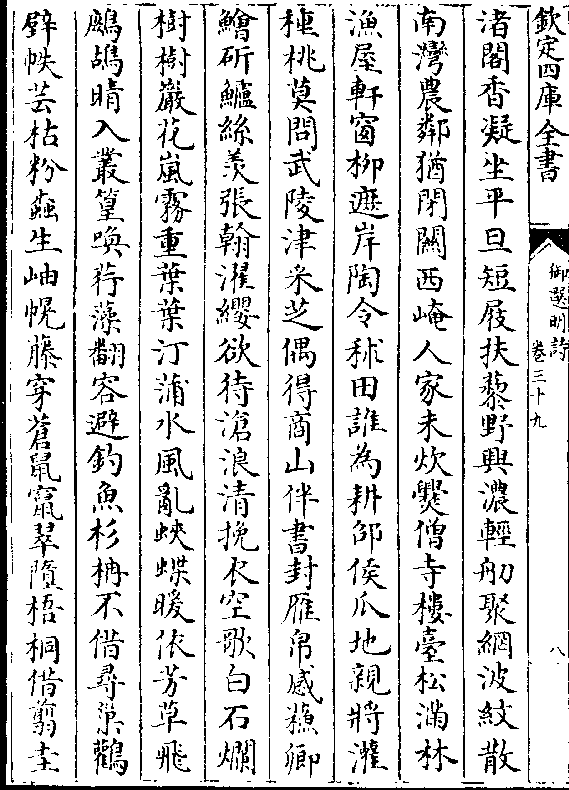 欽定四庫全書
御選明詩
卷三十九
八
渚閣香凝坐平旦短屐扶藜野興濃輕舠聚網波紋散
南灣農鄰猶閉關西崦人家未炊爨僧寺樓臺松滿林
漁屋軒窗柳遮岸陶令秫田誰為耕邵侯瓜地親將灌
種桃莫問武陵津采芝偶得商山伴書封雁帛感蘓卿
鱠斫鱸絲羡張翰濯纓欲待滄浪清挽衣空歌白石爛
樹樹巖花嵐霧重葉葉汀蒲水風亂蛺蝶暖依芳草飛
鷓鴣晴入叢篁喚荇藻翻客避釣魚杉枏不借尋巢鸛
壁帙芸枯粉蟲生岫幌藤穿蒼鼠竄翠隨梧桐借翦圭